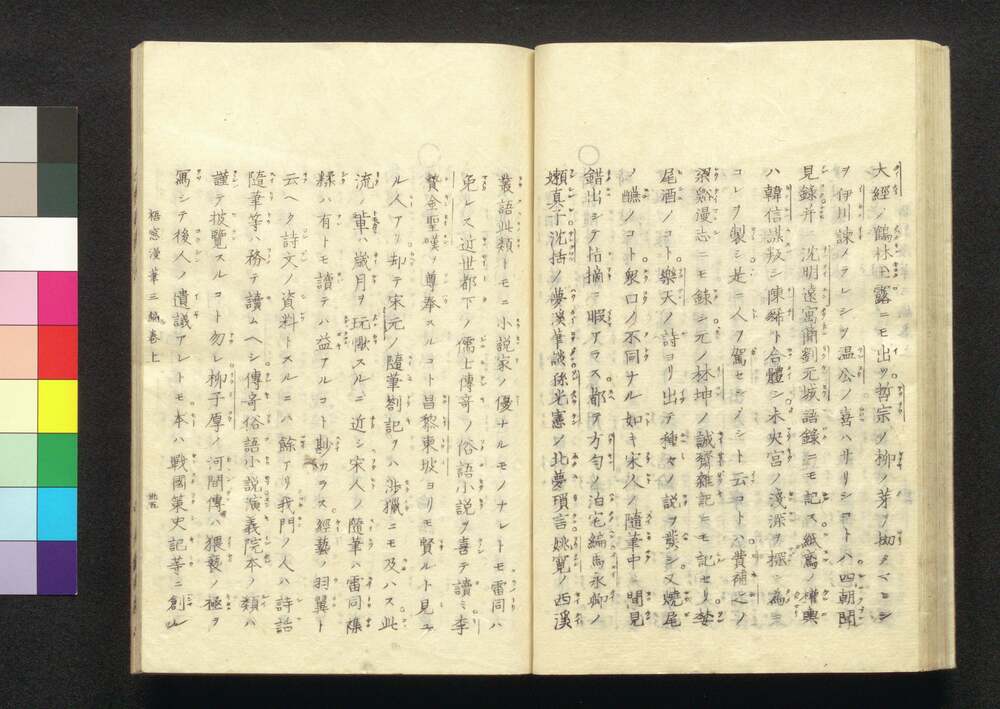 大經ノ鶴林玉露ニモ出ツ哲宗ノ柳ノ芽ヲ切タマヒシ
ヲ伊川諫メラレシヲ温公ノ喜ハサリシコトハ四朝聞
見錄并ニ沈明遠寓簡劉元城語錄ニモ記ス紙鳶ノ權輿
ハ韓信謀叛シ陳豨ト合體シ未央宮ノ淺深ヲ探ン為ニ
コレヲ製シ是ニ人ヲ駕セシメシト云コトハ費補之ノ
梁谿漫志ニモ錄シ元ノ林坤ノ誠齋雜記ニモ記セリ婪
尾酒ノコト樂天ノ詩ヨリ出テ種々ノ説ヲ發シ又燒尾
ノ醼ノコト衆口ノ不同ナル如キ宋人ノ隨筆中ニ聞見
錯出シテ拈摘ニ暇アラス都テ方勺ノ泊宅編馬永卿ノ
嬾真子沈括ノ夢溪筆談孫光憲ノ北夢瑣言姚寛ノ西溪
叢語此類トモニ小説家ノ優ナルモノナレトモ雷同ハ
免レス近世都下ノ儒士傳奇ノ俗語小説ヲ喜テ讀ミ李
贄金聖嘆ヲ尊奉スルコト昌黎東坡ヨリモ賢ルト見ユ
ル人アリ却テ宋元ノ隨筆劄記ヲハ渉獵ニモ及ハス此
流ノ輩ハ歳月ヲ玩愒スルニ近シ宋人ノ隨筆ハ雷同煠
糅ハ有トモ讀テハ益アルコト尠カラス經藝ノ羽翼ト
云ヘク詩文ノ資料トスルニハ餘アリ我門ノ人ハ詩話
隨筆等ハ務テ讀ムヘシ傳奇俗語小説演義院本ノ類ハ
謹テ披覽スルコト勿レ柳子厚ノ河間傳ハ猥褻ノ極ヲ
寫シテ後人ノ遺議アレトモ本ハ戰國策史記等ニ創リ
梧窓漫筆三編巻上